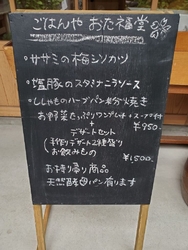 ごはんや おた福堂
・ササミの梅ジソカツ
・塩豚のスタミナニラソース
・ししゃものハーブパン粉焼き
お野菜たっぷりワンプレート+スープ付
¥950-
+
デザートセット
(手作りデザート2種盛り
お飲みもの
¥1,500
お持ち帰り商品
天然酵母パン有ります